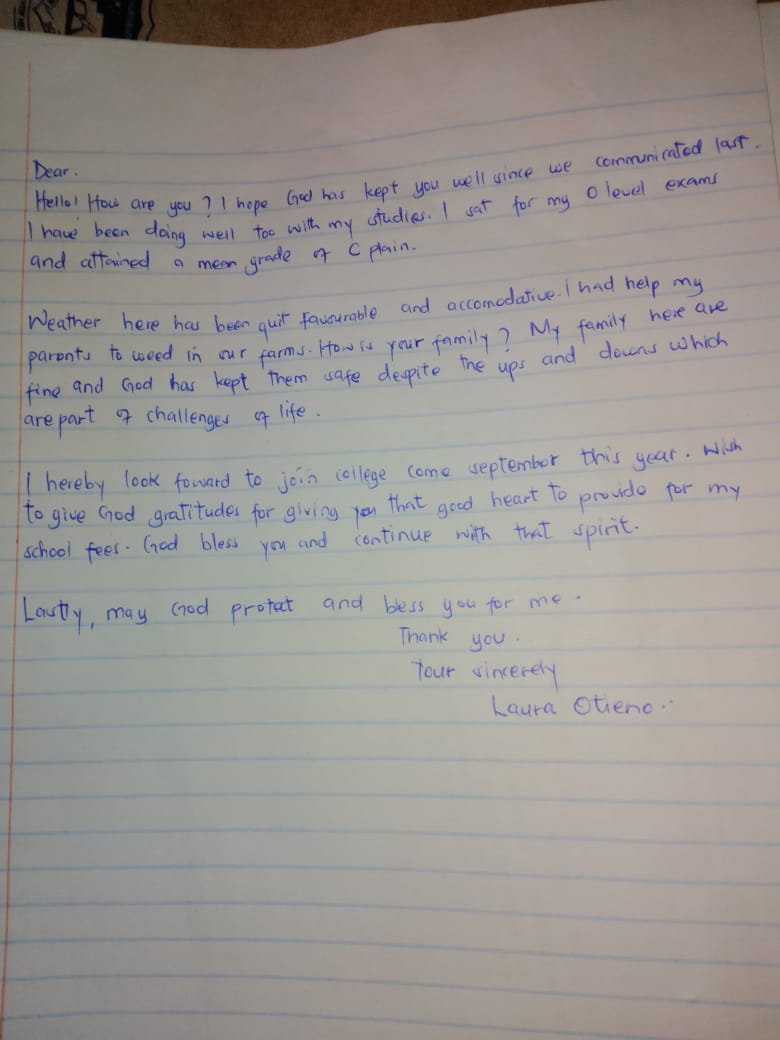 Dear.
Hello! How are you? I hope God has kept you well since we communicated last.
I have been doing well too with my studies. I sat for my O level exams
and attained a mean grade of C plain.
Weather here has been quit favourable and accomodative. I had help my
parents to weed in our farms. How is your family? My family here are
fine and God has kept them safe despite the ups and downs which
are part of challenges of life.
I hereby look foward to join college come september this year. Wish
to give God gratitudes for giving you that good heart to provide for my
school fees. God bless you and continue with that spirit.
Lastly, may God protect and bless you for me.
Thank you.
Your sincerely
Laura Otieno..